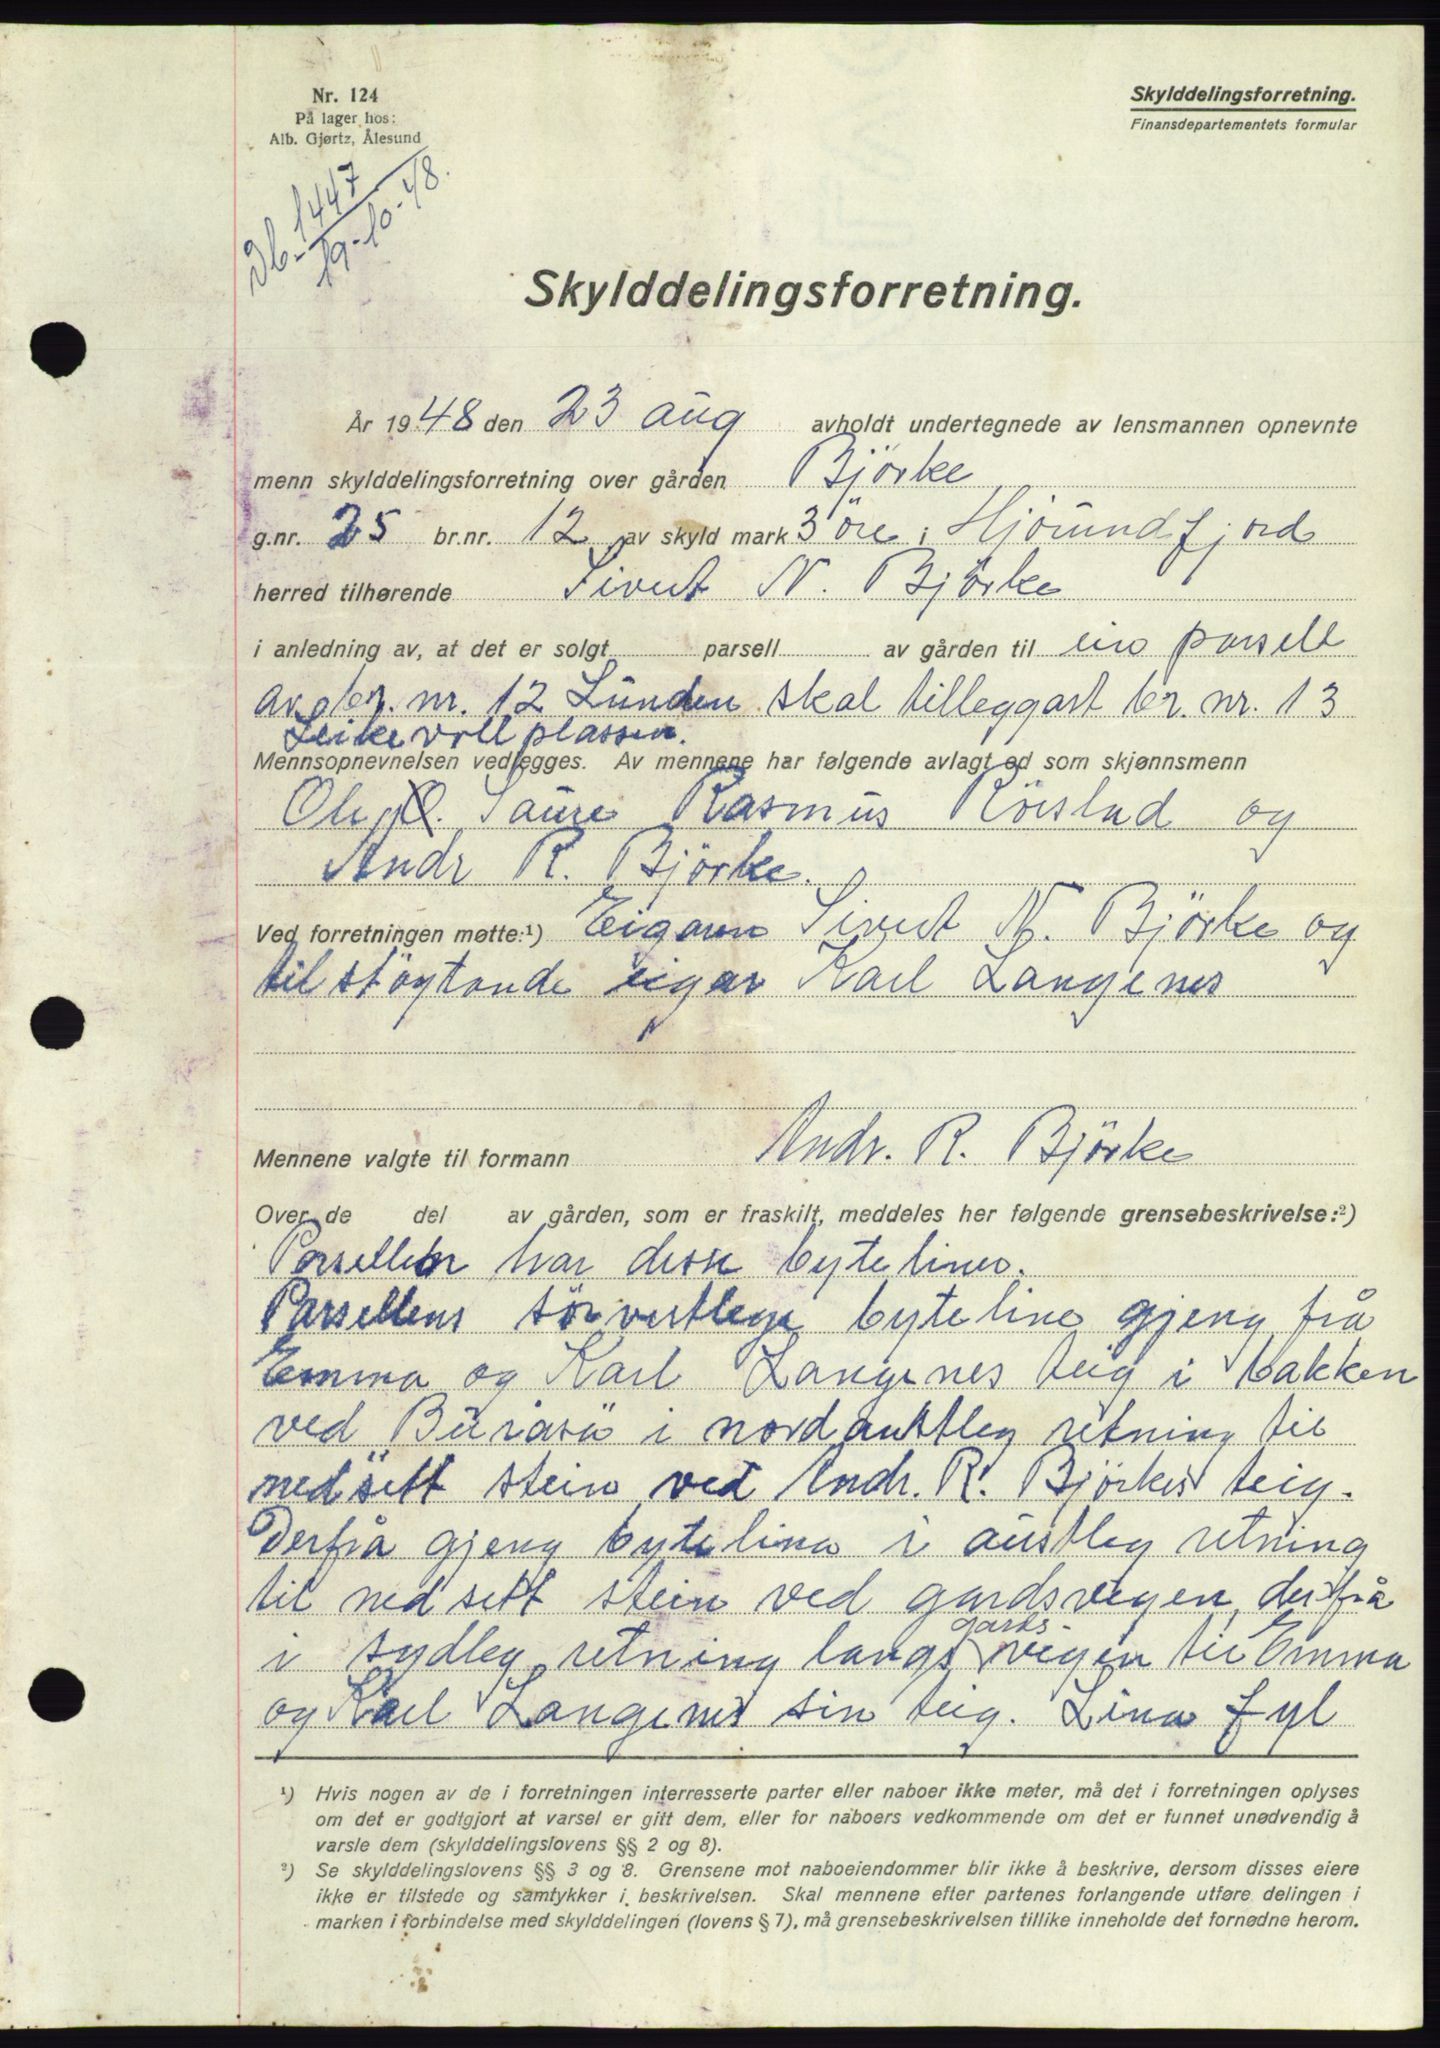 Nr. 124
På lager hos:
Alb. Gjørtz, Ålesund
Skylddelingsforretning.
Finansdepartementets formular
Db. 1447
19-10-48.
Skylddelingsforretning.
År 1948 den 23 aug avholdt undertegnede av lensmannen opnevnte
menn skylddelingsforretning over gården Björke
g.nr. 25 br.nr. 12 av skyld mark 3 öre i Hjörundfjord
herred tilhørende Sivert N. Björke
i anledning av, at det er solgt parsell av gården til ein parsell
av br. nr. 12 Lunden skal tilleggast br. nr. 13
Leikevollplassen.
Mennsopnevnelsen vedlegges. Av mennene har følgende avlagt ed som skjønnsmenn
Ole O. Saure Rasmus Rörstad og
Andr R. Björke.
Ved forretningen møtte:¹) Eigaren Sivert N. Björke og
tilstöytande eigar Karl Langenes
Mennene valgte til formann Andr. R. Björke
Over de del av gården, som er fraskilt, meddeles her følgende grensebeskrivelse:²)
Parsellen har desse byteliner.
Parsellens sörvestlege byteline gjeng frå
Emma og Karl Langenes teig i bakken
ved i nordaustleg retning til
nedsett stein ved Andr. R. Björkes teig.
Derfrå gjeng bytelina i austleg retning
til nedsett stein ved gardsvegen, derifrå
i sydleg retning langs gards vegen til Emma
og Karl Langenes sin teig. Lina fyl
¹) Hvis nogen av de i forretningen interresserte parter eller naboer ikke møter, må det i forretningen oplyses
om det er godtgjort at varsel er gitt dem, eller for naboers vedkommende om det er funnet unødvendig å
varsle dem (skylddelingslovens §§ 2 og 8).
²) Se skylddelingslovens §§ 3 og 8. Grensene mot naboeiendommer blir ikke å beskrive, dersom disses eiere
ikke er tilstede og samtykker i beskrivelsen. Skal mennene efter partenes forlangende utføre delingen i
marken i forbindelse med skylddelingen (lovens § 7), må grensebeskrivelsen tillike inneholde det fornødne herom.